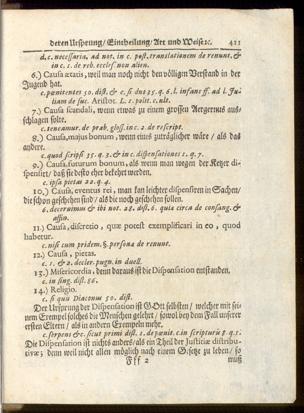 deren Ursprung / Eintheilung / Art und Weise ꝛc. 421
d. c. necessaria, ad not. in c. post. translationem de renunt. &
in c. 1. de reb. eccles. non alien.
6.) Causa ætatis, weil man noch nicht den völligen Verstand in der
Jugend hat.
c. pœnitentes 50. dist. & c. si dns 35. q. 6. l. infans ff. ad l. Ju-
liam de sic. Aristot. L. 2. polit. c. ult.
7.) Causa scandali, wenn etwas zu einem grossen Aergernus aus-
schlagen solte.
c. teneamur. de præb. gloss. in c. 2. de rescript.
8.) Causa, majus bonum, wenn eines zuträglicher wäre / als das
andere.
c. quod scripsi 35. q. 3. & in c. dispensationes 1. q. 7.
9.) Causa, futurum bonum, als wenn man wegen der Ketzer di-
spensirt / daß sie desto eher bekehret werden.
c. ipsa pietas 22. q. 4.
10.) Causa, eventus rei, man kan leichter dispensiren in Sachen /
die schon geschehen sind / als die noch geschehen sollen.
c. decernimus & ibi not. 28. dist. c. quia circa de consang. &
affin.
11.) Causa, discretio, quæ potest exemplificari in eo, quod
habetur.
c. nisi cum pridem. §. persona de renunt.
12.) Causa, pietas.
c. 1. & 2. decler. pugn. in duell.
13.) Misericordia, denn daraus ist die Dispensation entstanden.
c. in sing. dist. 56.
14.) Religio.
c. si quis Diaconus 50. dist.
Der Ursprung der Dispensation ist GOtt selbsten / welcher mit sei-
nem Exempel solches die Menschen gelehret / sowol bey dem Fall unserer
ersten Eltern / als in andern Exempeln mehr.
c. serpens &c. sicut primi dist. 1. de pœnit. c. in scripturis 8. q. 1.
Die Dispensation ist nichts anders / als ein Theil der Justiciæ distribu-
tivæ; denn weil nicht allen möglich nach einem Gesetze zu leben / so
Fff 2 muß